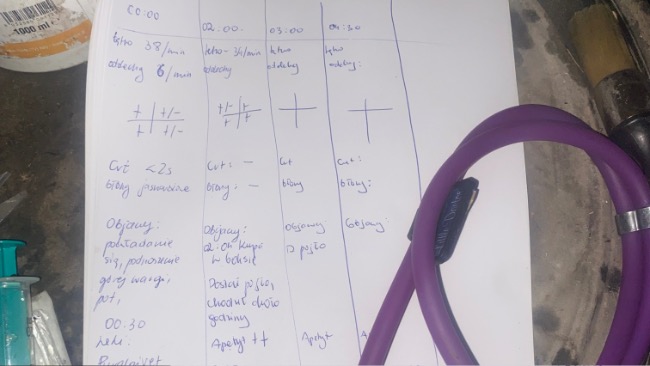 1000 ml
00:00
tętno 38/min
oddechy 8/min
+ +/-
+ +/-
Crt <2s
błony
Objawy:
pokładanie
się, podnoszenie
górnej wargi,
pot,
00:30
Leki:
02:00
tętno - 34/min
oddechy
+/- +
+ +
Crt: -
błony: -
Objawy:
02:00 kupa
w boksie
Dostał pójło,
chodził
godziny
Apetyt ++
03:00
tętno
oddechy
Crt
błony
Objawy
pójło
Apetyt
04:30
tętno
oddechy:
Crt:
błony:
Objawy:
A